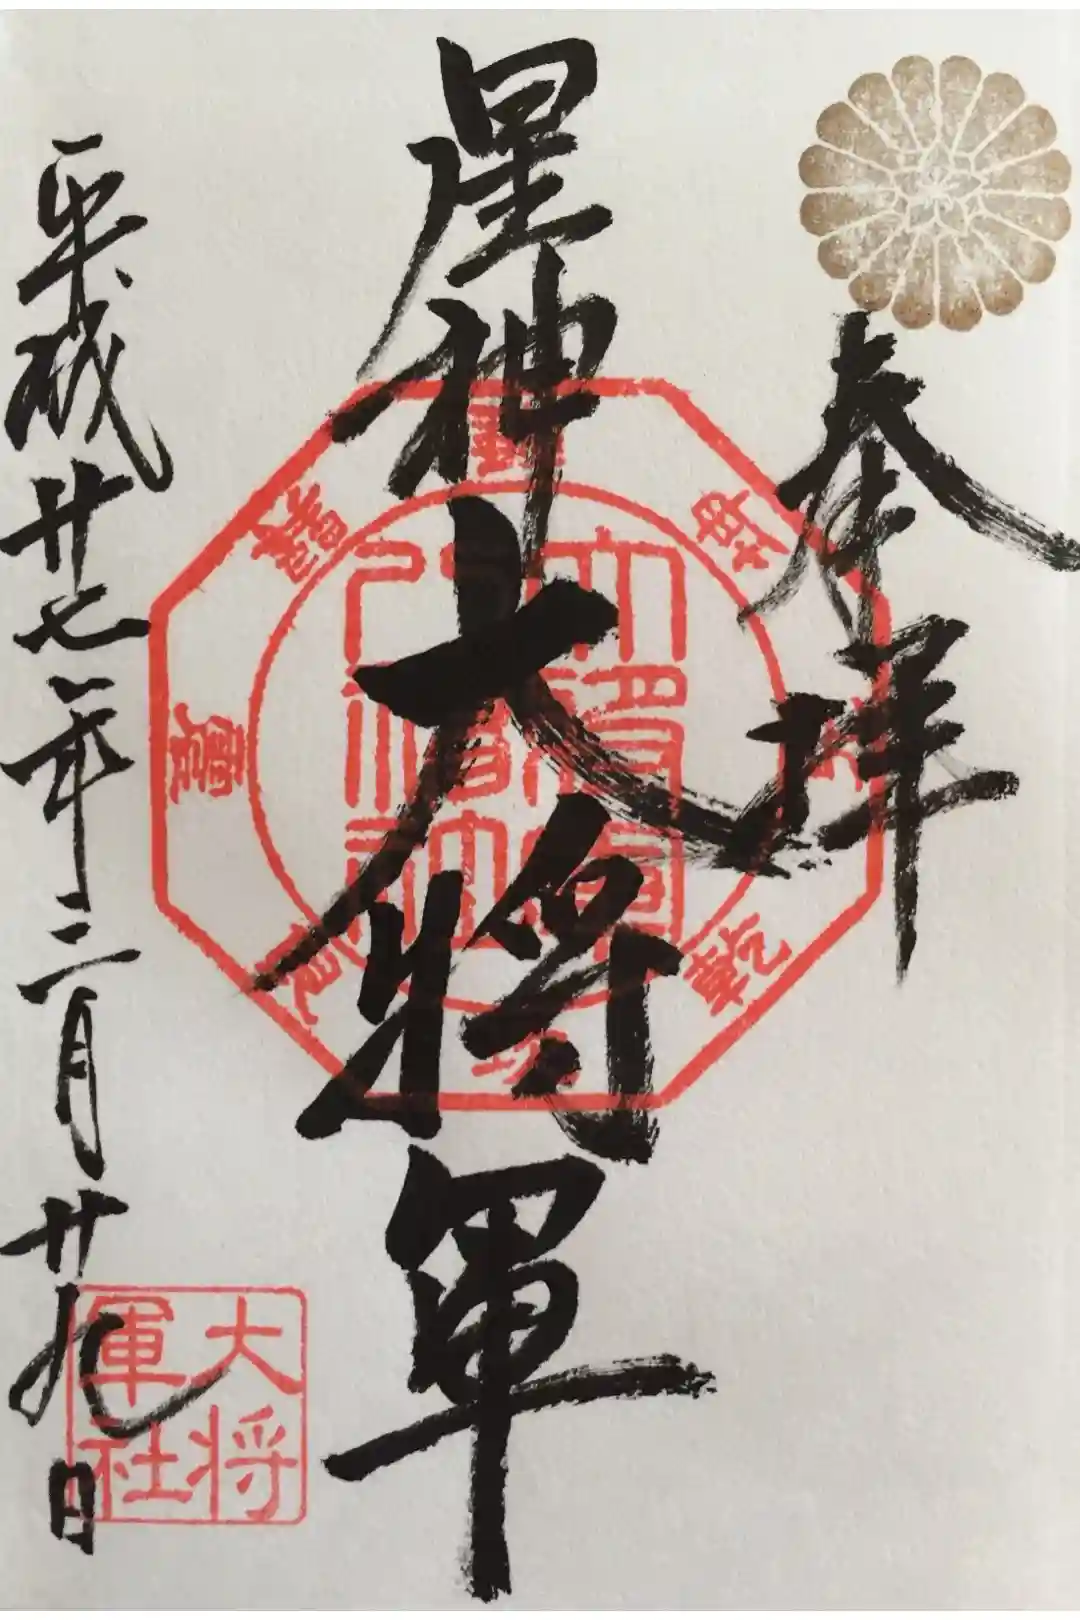 奉拝
星神大将軍
平成廿七年三月廿九日
乾
大将
軍社